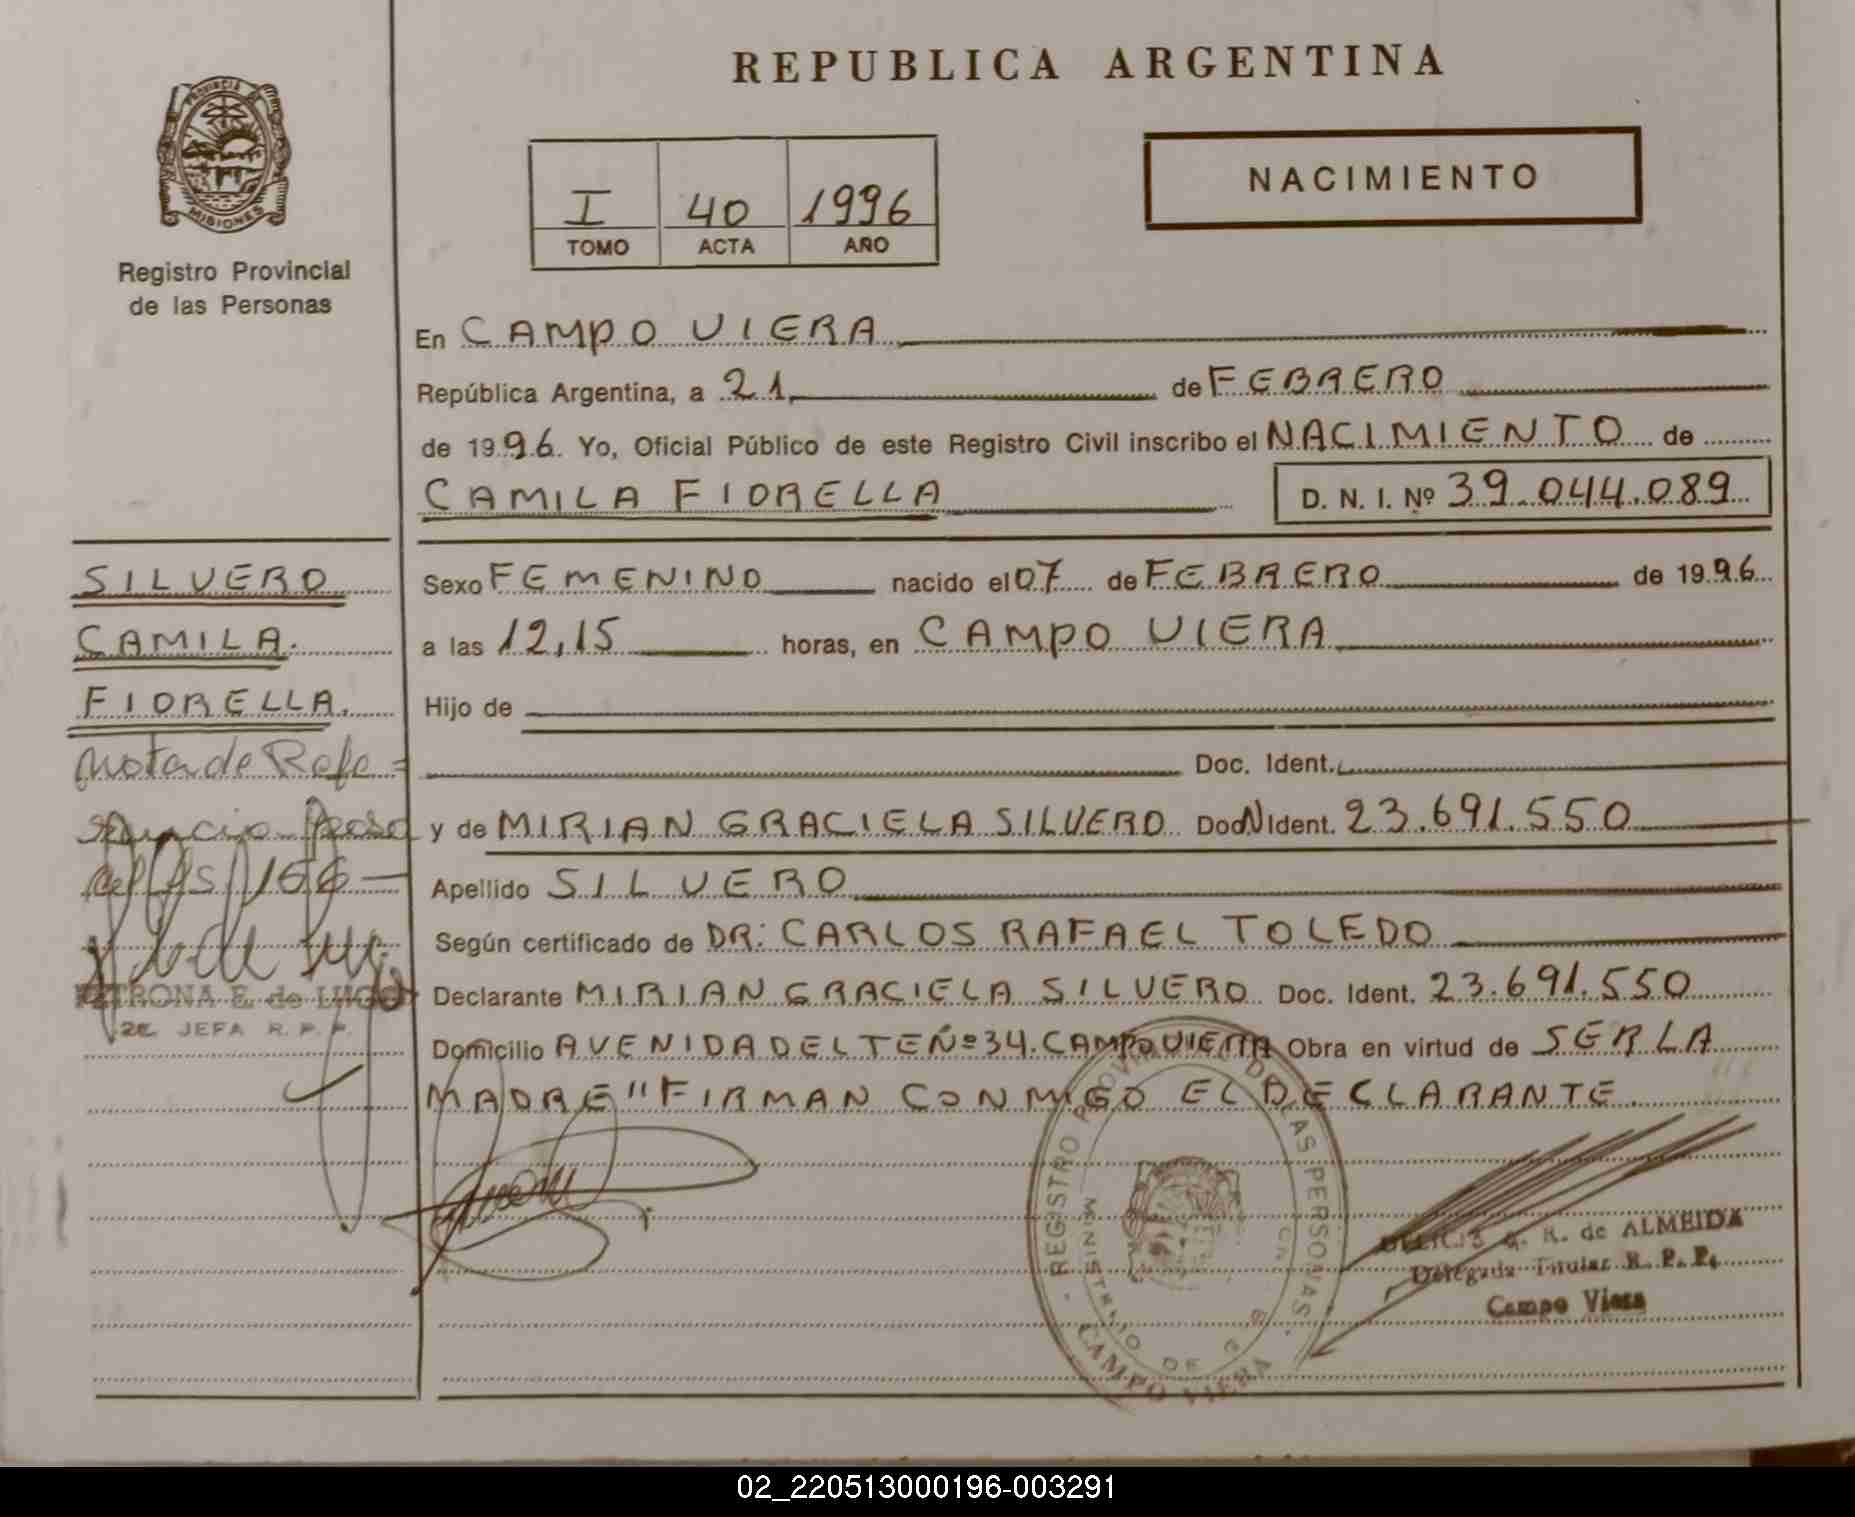 REPUBLICA ARGENTINA
PROVINCIA DE
MISIONES
Registro Provincial
de las Personas
I 40 1996
TOMO ACTA AÑO
NACIMIENTO
En CAMPO VIERA
República Argentina, a 21 de FEBRERO
de 1996. Yo, Oficial Público de este Registro Civil inscribo el NACIMIENTO de
CAMILA FIORELLA D. N. I. Nº 39.044.089
SILVERO
CAMILA.
FIORELLA.
Nota de Refe=
166
PETRONA E. de LUGO
2E JEFA R. P. P.
Sexo FEMENINO nacido el 07 de FEBRERO de 1996
a las 12,15 horas, en CAMPO VIERA
Hijo de
Doc. Ident.
y de MIRIAN GRACIELA SILVERO Doc Ident. 23.691.550
Apellido SILVERO
Según certificado de DR: CARLOS RAFAEL TOLEDO
Declarante MIRIAN GRACIELA SILVERO Doc. Ident. 23.691.550
Domicilio AVENIDA DEL TE Nº 34. CAMPO VIERA Obra en virtud de SER LA
MADRE "FIRMAN CONMIGO EL DECLARANTE
REGISTRO PROVINCIAL DE LAS PERSONAS
MINISTERIO DE
CAMPO VIERA
G. R. de ALMEIDA
Delegada Titular R. P. P.
Campo Viera
02_220513000196-003291